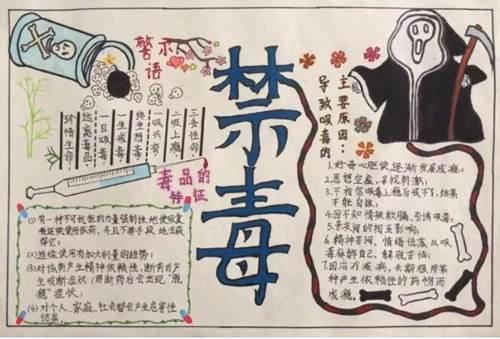 警示
语
禁毒
珍惜生命,
远离毒品
一日吸毒,
终生想毒!
一吸共衰
二吸上瘾,
三去性命。
毒品的
特征
(1)有一种不可抗拒的力量强制性地使吸食
者连续使用该药,并且不择手段地去获
得它;
(2)连续使用有加大剂量的趋势;
(3)对该药产生精神依赖性,断药后产
生戒断症状(即断药后会出现“脱
瘾”症状;
(4)对个人、家庭、社会都会产生危害性
结果。
导致吸毒的
主要原因:
1.好奇心驱使逐渐发展成瘾;
2.思想空虚,寻找刺激;
3.不相信吸毒上瘾后戒不了,结果
不能自拔;
4.因不知情被欺骗,引诱吸毒;
6.精神苦闷,情绪低落,以吸
毒麻醉自己,解脱苦恼;
7.因治疗疾病,长期服用某
种产生依赖性的药物而
成瘾。